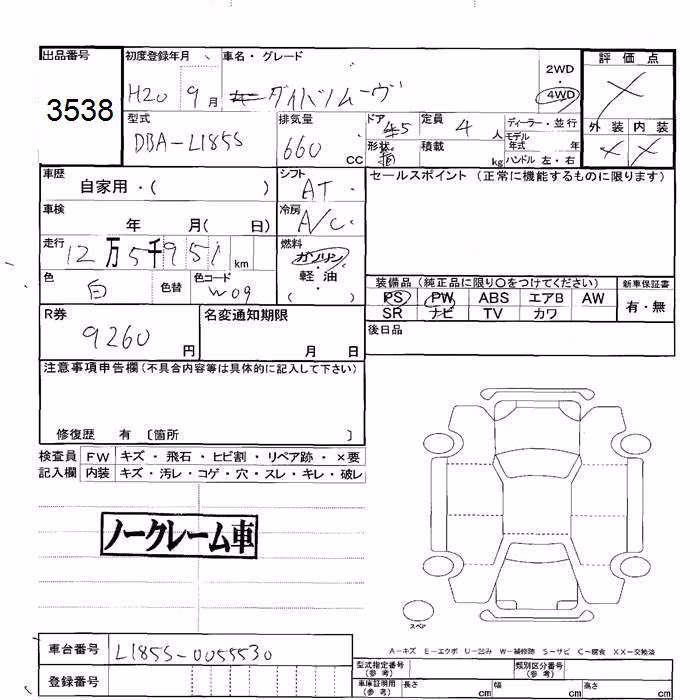 出品番号 初度登録年月 車名・グレード 評価点
3538 H20 9月 ダイハツムーヴ 2WD・4WD ×
型式 排気量 ドア 5 定員 4 人 ディーラー・並行 外装 内装
DBA-L185S 660 cc 形状 箱 積載 kg モデル年式 年 ハンドル 左・右 × ×
車歴 シフト セールスポイント (正常に機能するものに限ります)
自家用・( ) AT
車検 年 月( 日) 冷房 A/C
走行 12万5千951 km 燃料 ガソリン・軽油 ( )
色 白 色替 色コード W09
装備品 (純正品に限り○をつけてください) 新車保証書
PS PW ABS エアB AW 有・無
SR ナビ TV カワ
R券 9260 円 名変通知期限 月 日 後日品
注意事項申告欄(不具合内容等は具体的に記入して下さい)
修復歴 有 〔箇所 〕
検査員 FW キズ・飛石・ヒビ割・リペア跡・×要
記入欄 内装 キズ・汚レ・コゲ・穴・スレ・キレ・破レ
ノークレーム車
スペア
A-キズ E-エクボ U-凹み W-補修跡 S-サビ C-腐食 XX-交換済
車台番号 L185S-0055530
型式指定番号(参考) 類別区分番号(参考)
登録番号 車庫証明用(参考) 長さ cm 幅 cm 高さ cm